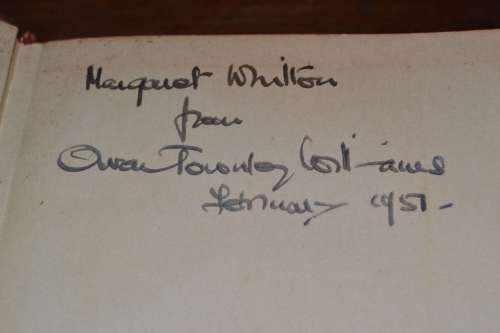 Margaret Whitton
from
Owen Townley Williams
February 1951.